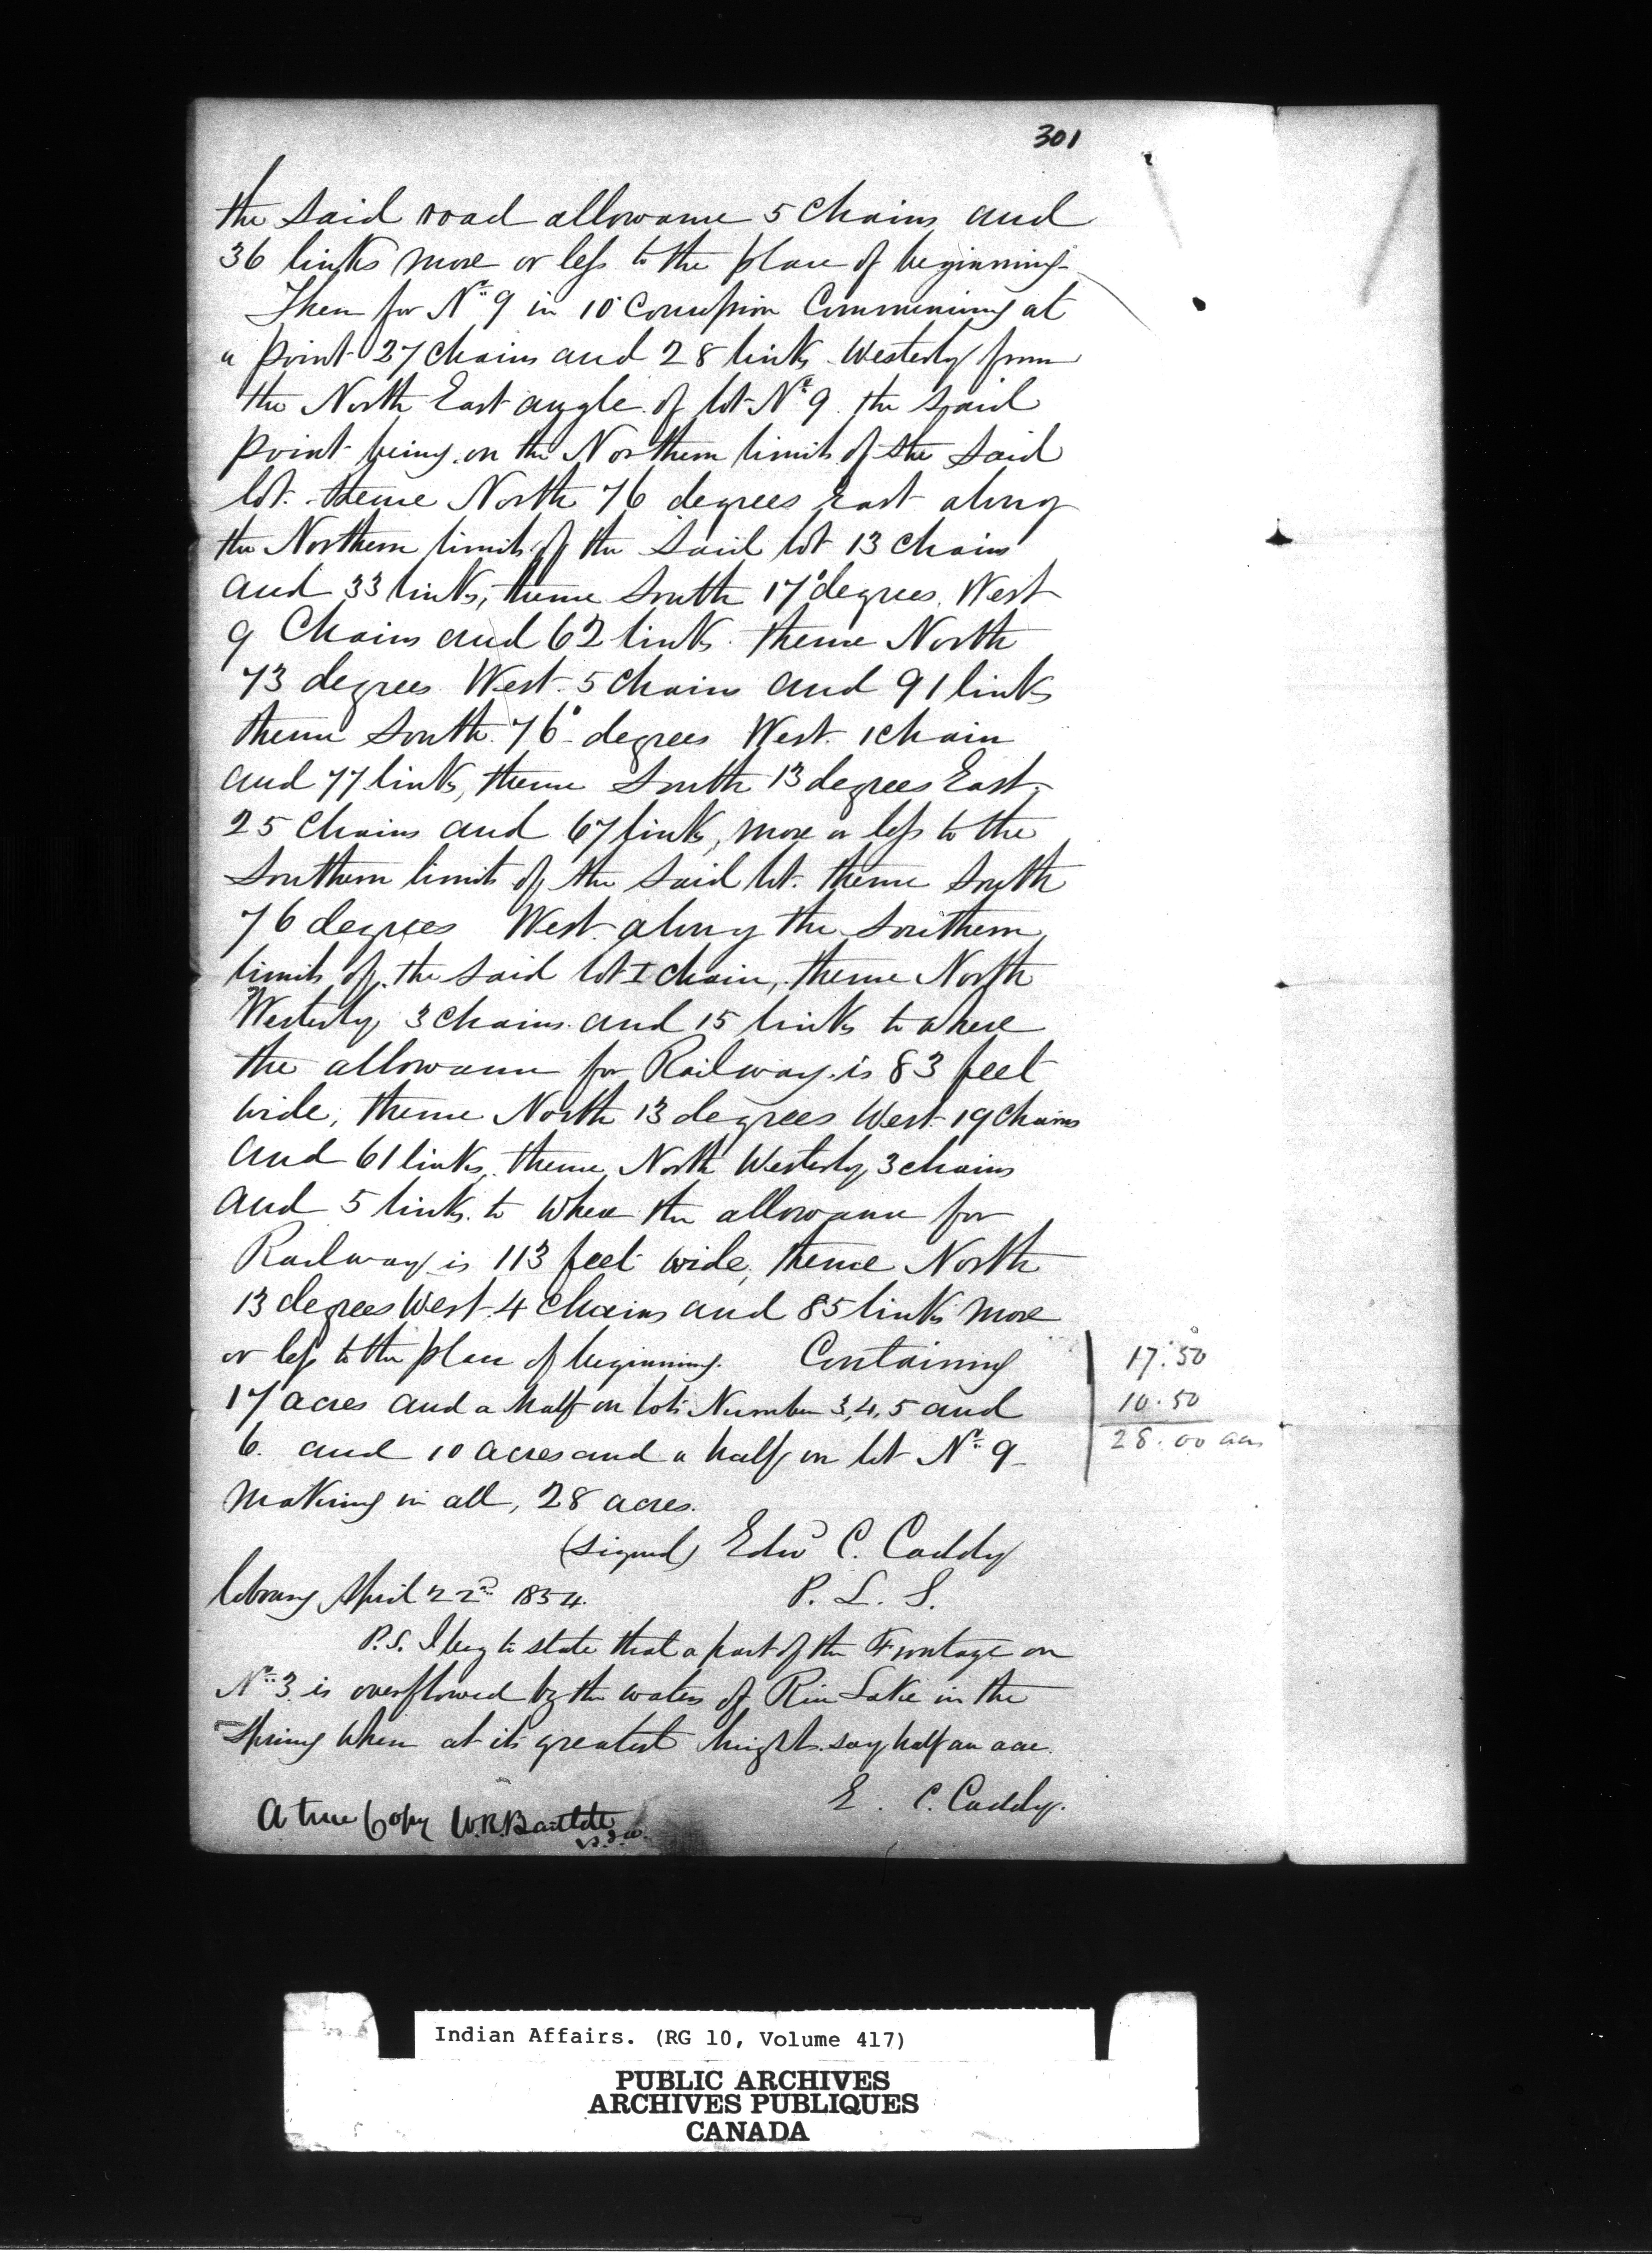 301
the said road allowance 5 Chains and
36 links more or less to the place of beginning
Then for No 9 in 10 Concession Commencing at
a point 27 Chains and 28 links Westerly from
the North East angle of lot No 9 the said
point being on the Northern limit of the said
lot. thence North 76 degrees East along
the Northern limit of the said lot 13 Chains
and 33 links, thence South 17° degrees West
9 Chains and 62 links thence North
73 degrees West 5 Chains and 91 links
thence South 76° degrees West 1 Chain
and 77 links, thence South 13 degrees East
25 Chains and 67 links, more or less to the
Southern limit of the said lot. thence South
76 degrees West along the Southern
limit of the said lot 1 Chain, thence North
Westerly 3 Chains and 15 links to where
the allowance for Railway is 83 feet
wide, thence North 13 degrees West 19 Chains
and 61 links, thence North Westerly 3 chains
and 5 links to where the allowance for
Railway is 113 feet wide, thence North
13 degrees West 4 Chains and 85 links more
or less to the place of beginning. Containing
17 acres and a half on lots Number 3, 4, 5 and
6. and 10 acres and a half on lot No 9
Making in all, 28 acres.
17.50
10.50
28.00 acs
(signed) Edwd C. Caddy
P. L. S.
Cobourg April 22nd 1854.
P.S. I beg to state that a part of the Frontage on
No 3 is overflowed by the waters of Rice Lake in the
Spring when at its greatest height say half an acre.
E. C. Caddy.
A true Copy W.R. Bartlett
Indian Affairs. (RG 10, Volume 417)
PUBLIC ARCHIVES
ARCHIVES PUBLIQUES
CANADA